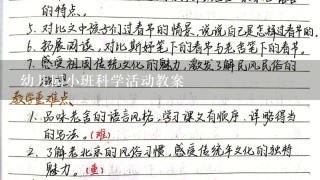 的特点。
5. 对比文中孩子们过春节的情景,说说自己是怎样过春节的。
6. 拓展阅读,对比斯好笔下的春节与老舍笔下的春节。
7. 感受祖国传统文化的魅力,激发了解民风民俗的
幼儿园小班科学活动教案
教学重难点
1. 品味老舍的语言风格,学习课文有顺序、详略得当
的写法。(难)
2. 了解老北京的风俗习惯,感受传统年文化的独特
魅力。(重)